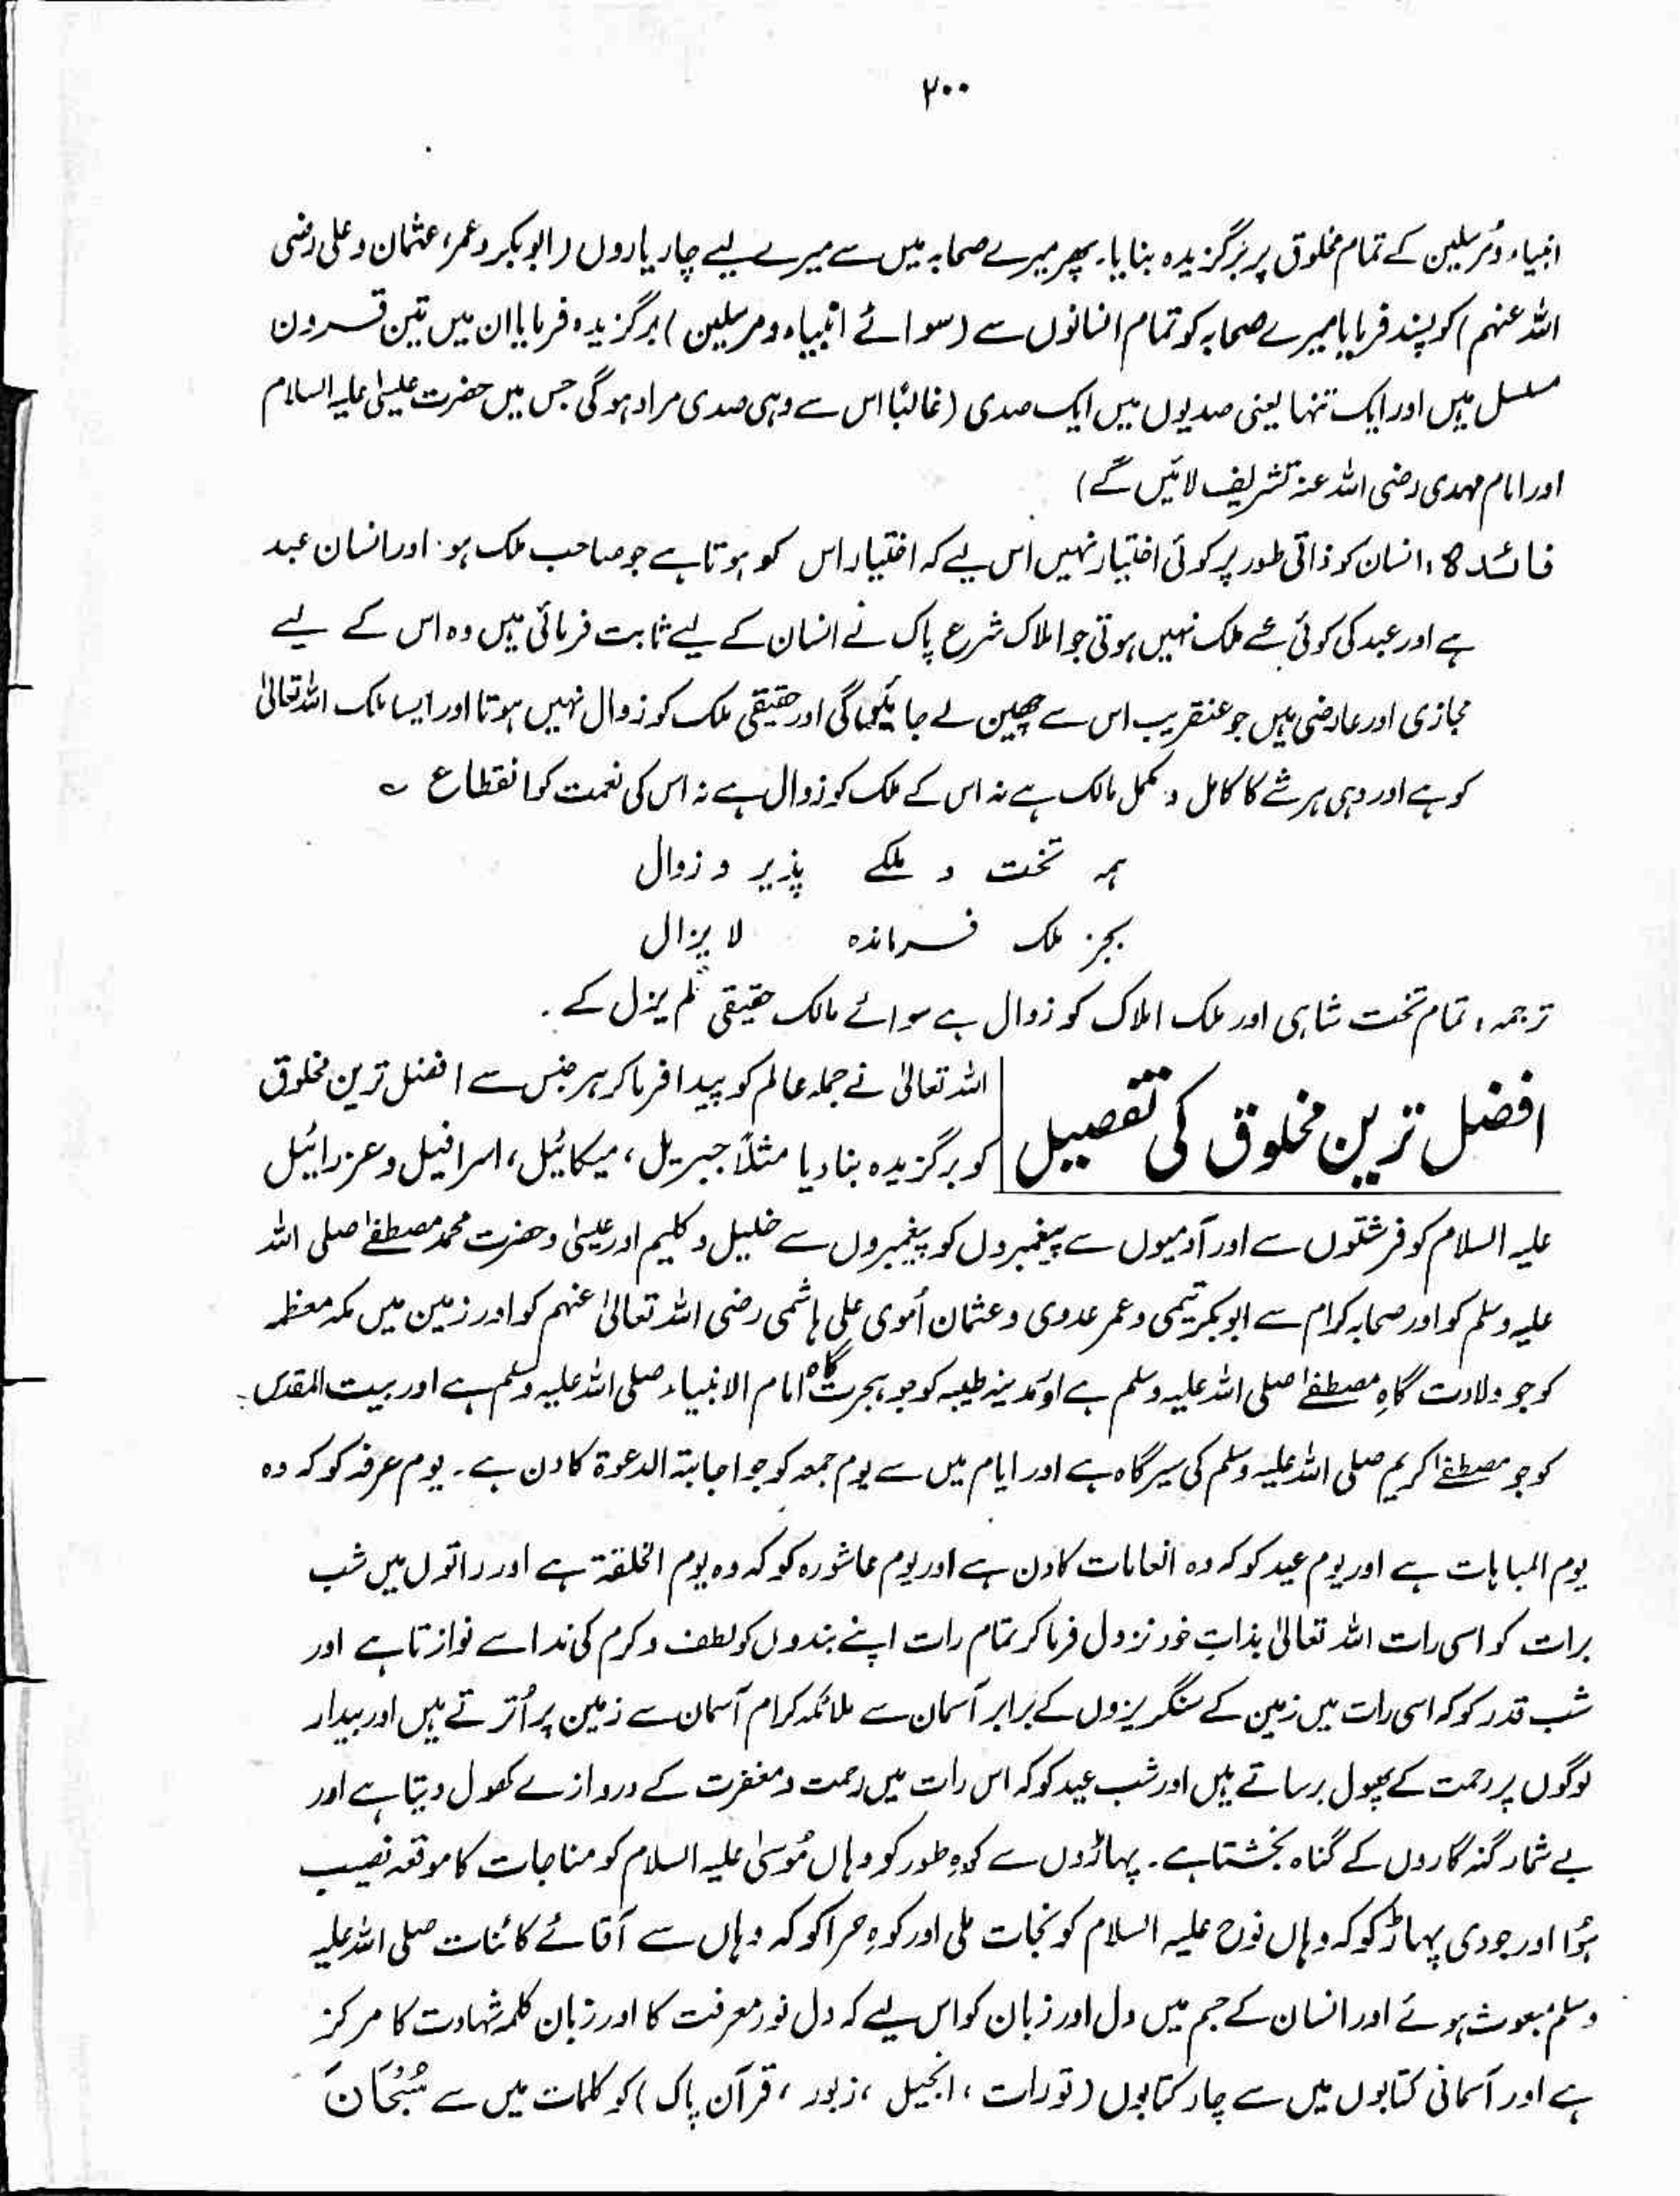 ۲۰۰
انبیاء و مُرسلین کے تمام مخلوق پر برگزیدہ بنایا۔ پھر میرے صحابہ میں سے میرے لیے چار یاروں (ابوبکر و عمر، عثمان و علی رضی
اللہ عنہم) کو پسند فرمایا میرے صحابہ کو تمام انسانوں سے (سوائے انبیاء و مرسلین) برگزیدہ فرمایا ان میں تین قسرون
مسلسل ہیں اور ایک تنہا یعنی صدیوں میں ایک صدی (غالبًا اس سے وہی صدی مراد ہوگی جس میں حضرت عیسیٰ علیہ السلام
اور امام مہدی رضی اللہ عنہ تشریف لائیں گے)
فائدہ: انسان کو ذاتی طور پر کوئی اختیار نہیں اس لیے کہ اختیار اس کو ہوتا ہے جو صاحب ملک ہو۔ اور انسان عبد
ہے اور عبد کی کوئی شے ملک نہیں ہوتی جو املاک شرع پاک نے انسان کے لیے ثابت فرمائی ہیں وہ اس کے لیے
مجازی اور عارضی ہیں جو عنقریب اس سے چھین لے جائیگی اور حقیقی ملک کو زوال نہیں ہوتا اور ایسا ملک اللہ تعالیٰ
کو ہے اور وہی ہر شے کا کامل و مکمل مالک ہے نہ اس کے ملک کو زوال ہے نہ اس کی نعمت کو انقطاع ؎
ہمہ تخت و ملکے پذیر و زوال
بجز ملک فرماندہ لا یزال
ترجمہ: تمام تخت شاہی اور ملک املاک کو زوال ہے سوائے مالک حقیقی لم یزل کے۔
افضل ترین مخلوق کی تفصیل
اللہ تعالیٰ نے جملہ عالم کو پیدا فرما کر ہر جنس سے افضل ترین مخلوق
کو برگزیدہ بنا دیا مثلاً جبریل، میکائیل، اسرافیل و عزرائیل
علیہ السلام کو فرشتوں سے اور آدمیوں سے پیغمبروں کو پیغمبروں سے خلیل و کلیم اور عیسیٰ و حضرت محمد مصطفےٰ صلی اللہ
علیہ وسلم کو اور صحابہ کرام سے ابوبکر تیمی و عمر عدوی و عثمان اُموی علی ہاشمی رضی اللہ تعالیٰ عنہم کو اور زمین میں مکہ معظمہ
کو جو ولادت گاہِ مصطفےٰ صلی اللہ علیہ وسلم ہے اور مدینہ طیبہ کو جو ہجرت گاہ امام الانبیاء صلی اللہ علیہ وسلم ہے اور بیت المقدس
کو جو مصطفےٰ کریم صلی اللہ علیہ وسلم کی سیر گاہ ہے اور ایام میں سے یوم جمعہ کو جو اجابتہ الدعوۃ کا دن ہے۔ یوم عرفہ کو کہ وہ
یوم المباہات ہے اور یوم عید کو کہ وہ انعامات کا دن ہے اور یوم عاشورہ کو کہ وہ یوم الخلقۃ ہے اور راتوں میں شب
برات کو اسی رات اللہ تعالیٰ بذاتِ خود نزول فرما کر تمام رات اپنے بندوں کو لطف و کرم کی ندا سے نوازتا ہے اور
شب قدر کو کہ اسی رات میں زمین کے سنگریزوں کے برابر آسمان سے ملائکہ کرام آسمان سے زمین پر اُترتے ہیں اور بیدار
لوگوں پر رحمت کے پھول برساتے ہیں اور شب عید کو کہ اس رات میں رحمت و مغفرت کے دروازے کھول دیتا ہے اور
بے شمار گنہ گاروں کے گناہ بخشتا ہے۔ پہاڑوں سے کوہِ طور کو وہاں مُوسیٰ علیہ السلام کو مناجات کا موقعہ نصیب
ہُوا اور جودی پہاڑ کو کہ وہاں نوح علیہ السلام کو نجات ملی اور کوہِ حرا کو کہ وہاں سے آقائے کائنات صلی اللہ علیہ
وسلم مبعوث ہوئے اور انسان کے جسم میں دل اور زبان کو اس لیے کہ دل نور معرفت کا اور زبان کلمہ شہادت کا مرکز
ہے اور آسمانی کتابوں میں سے چار کتابوں (تورات، انجیل، زبور، قرآن پاک) کو کلمات میں سے سُبْحَانَ